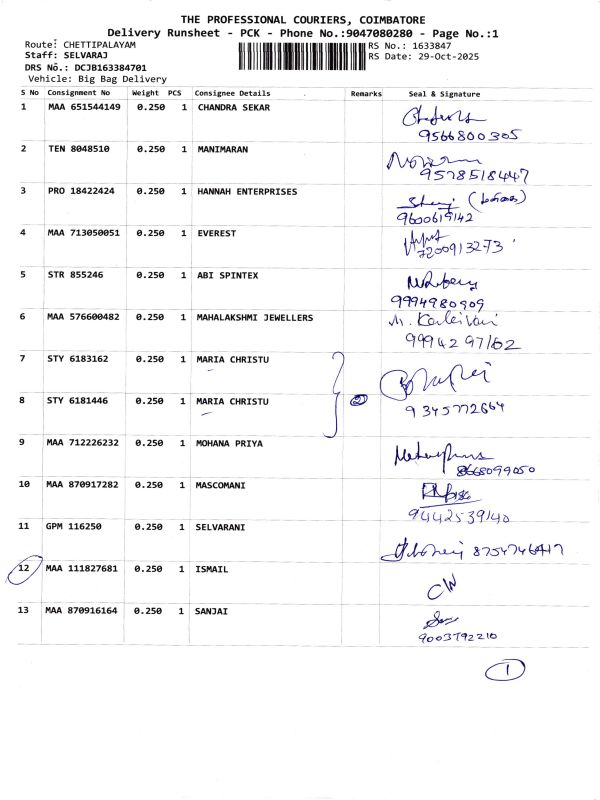 THE PROFESSIONAL COURIERS, COIMBATORE
Delivery Runsheet - PCK - Phone No.:9047080280 - Page No.:1
Route: CHETTIPALAYAM
RS No.: 1633847
Staff: SELVARAJ
RS Date: 29-Oct-2025
DRS No.: DCJB163384701
Vehicle: Big Bag Delivery
S No Consignment No Weight PCS Consignee Details Remarks Seal & Signature
1 MAA 651544149 0.250 1 CHANDRA SEKAR
9566800305
2 TEN 8048510 0.250 1 MANIMARAN
9578518447
3 PRO 18422424 0.250 1 HANNAH ENTERPRISES
9600619142
4 MAA 713050051 0.250 1 EVEREST
7200913273
5 STR 855246 0.250 1 ABI SPINTEX
9994980909
6 MAA 576600482 0.250 1 MAHALAKSHMI JEWELLERS
9994297162
7 STY 6183162 0.250 1 MARIA CHRISTU
8 STY 6181446 0.250 1 MARIA CHRISTU 2
9345772664
9 MAA 712226232 0.250 1 MOHANA PRIYA
8668099050
10 MAA 870917282 0.250 1 MASCOMANI
9442539140
11 GPM 116250 0.250 1 SELVARANI
12 MAA 111827681 0.250 1 ISMAIL
13 MAA 870916164 0.250 1 SANJAI
9003792210
1